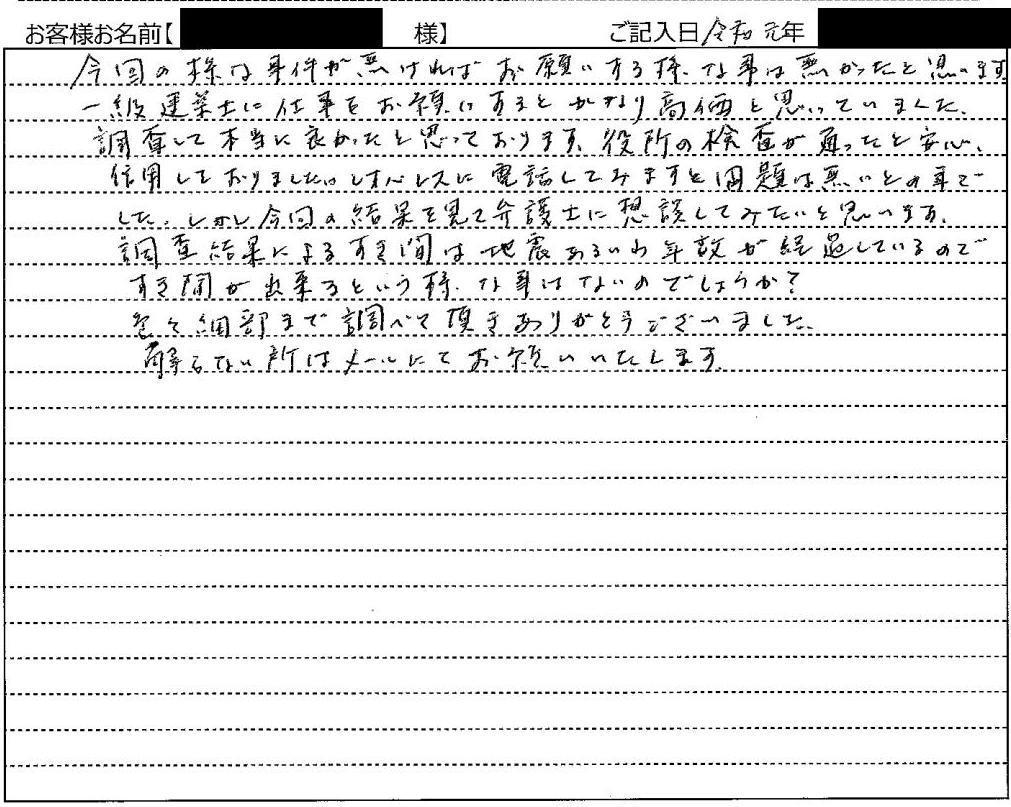 お客様お名前【 様】 ご記入日 令和 元年
今回の様な事件が無ければお願いする様な事は無かったと思います
一級建築士に仕事をお願いするとかなり高価と思っていました。
調査して本当に良かったと思っております。役所の検査が通ったと安心、
信用しておりました。レオパレスに電話してみますと問題は無いとの事で
した。しかし今回の結果を見て弁護士に想談してみたいと思います。
調査結果によるすき間は地震あるいは年数が経過しているので
すき間が出来るという様な事はないのでしょうか?
色々細部まで調べて頂きありがとうございました。
解らない所はメールにてお願いいたします。